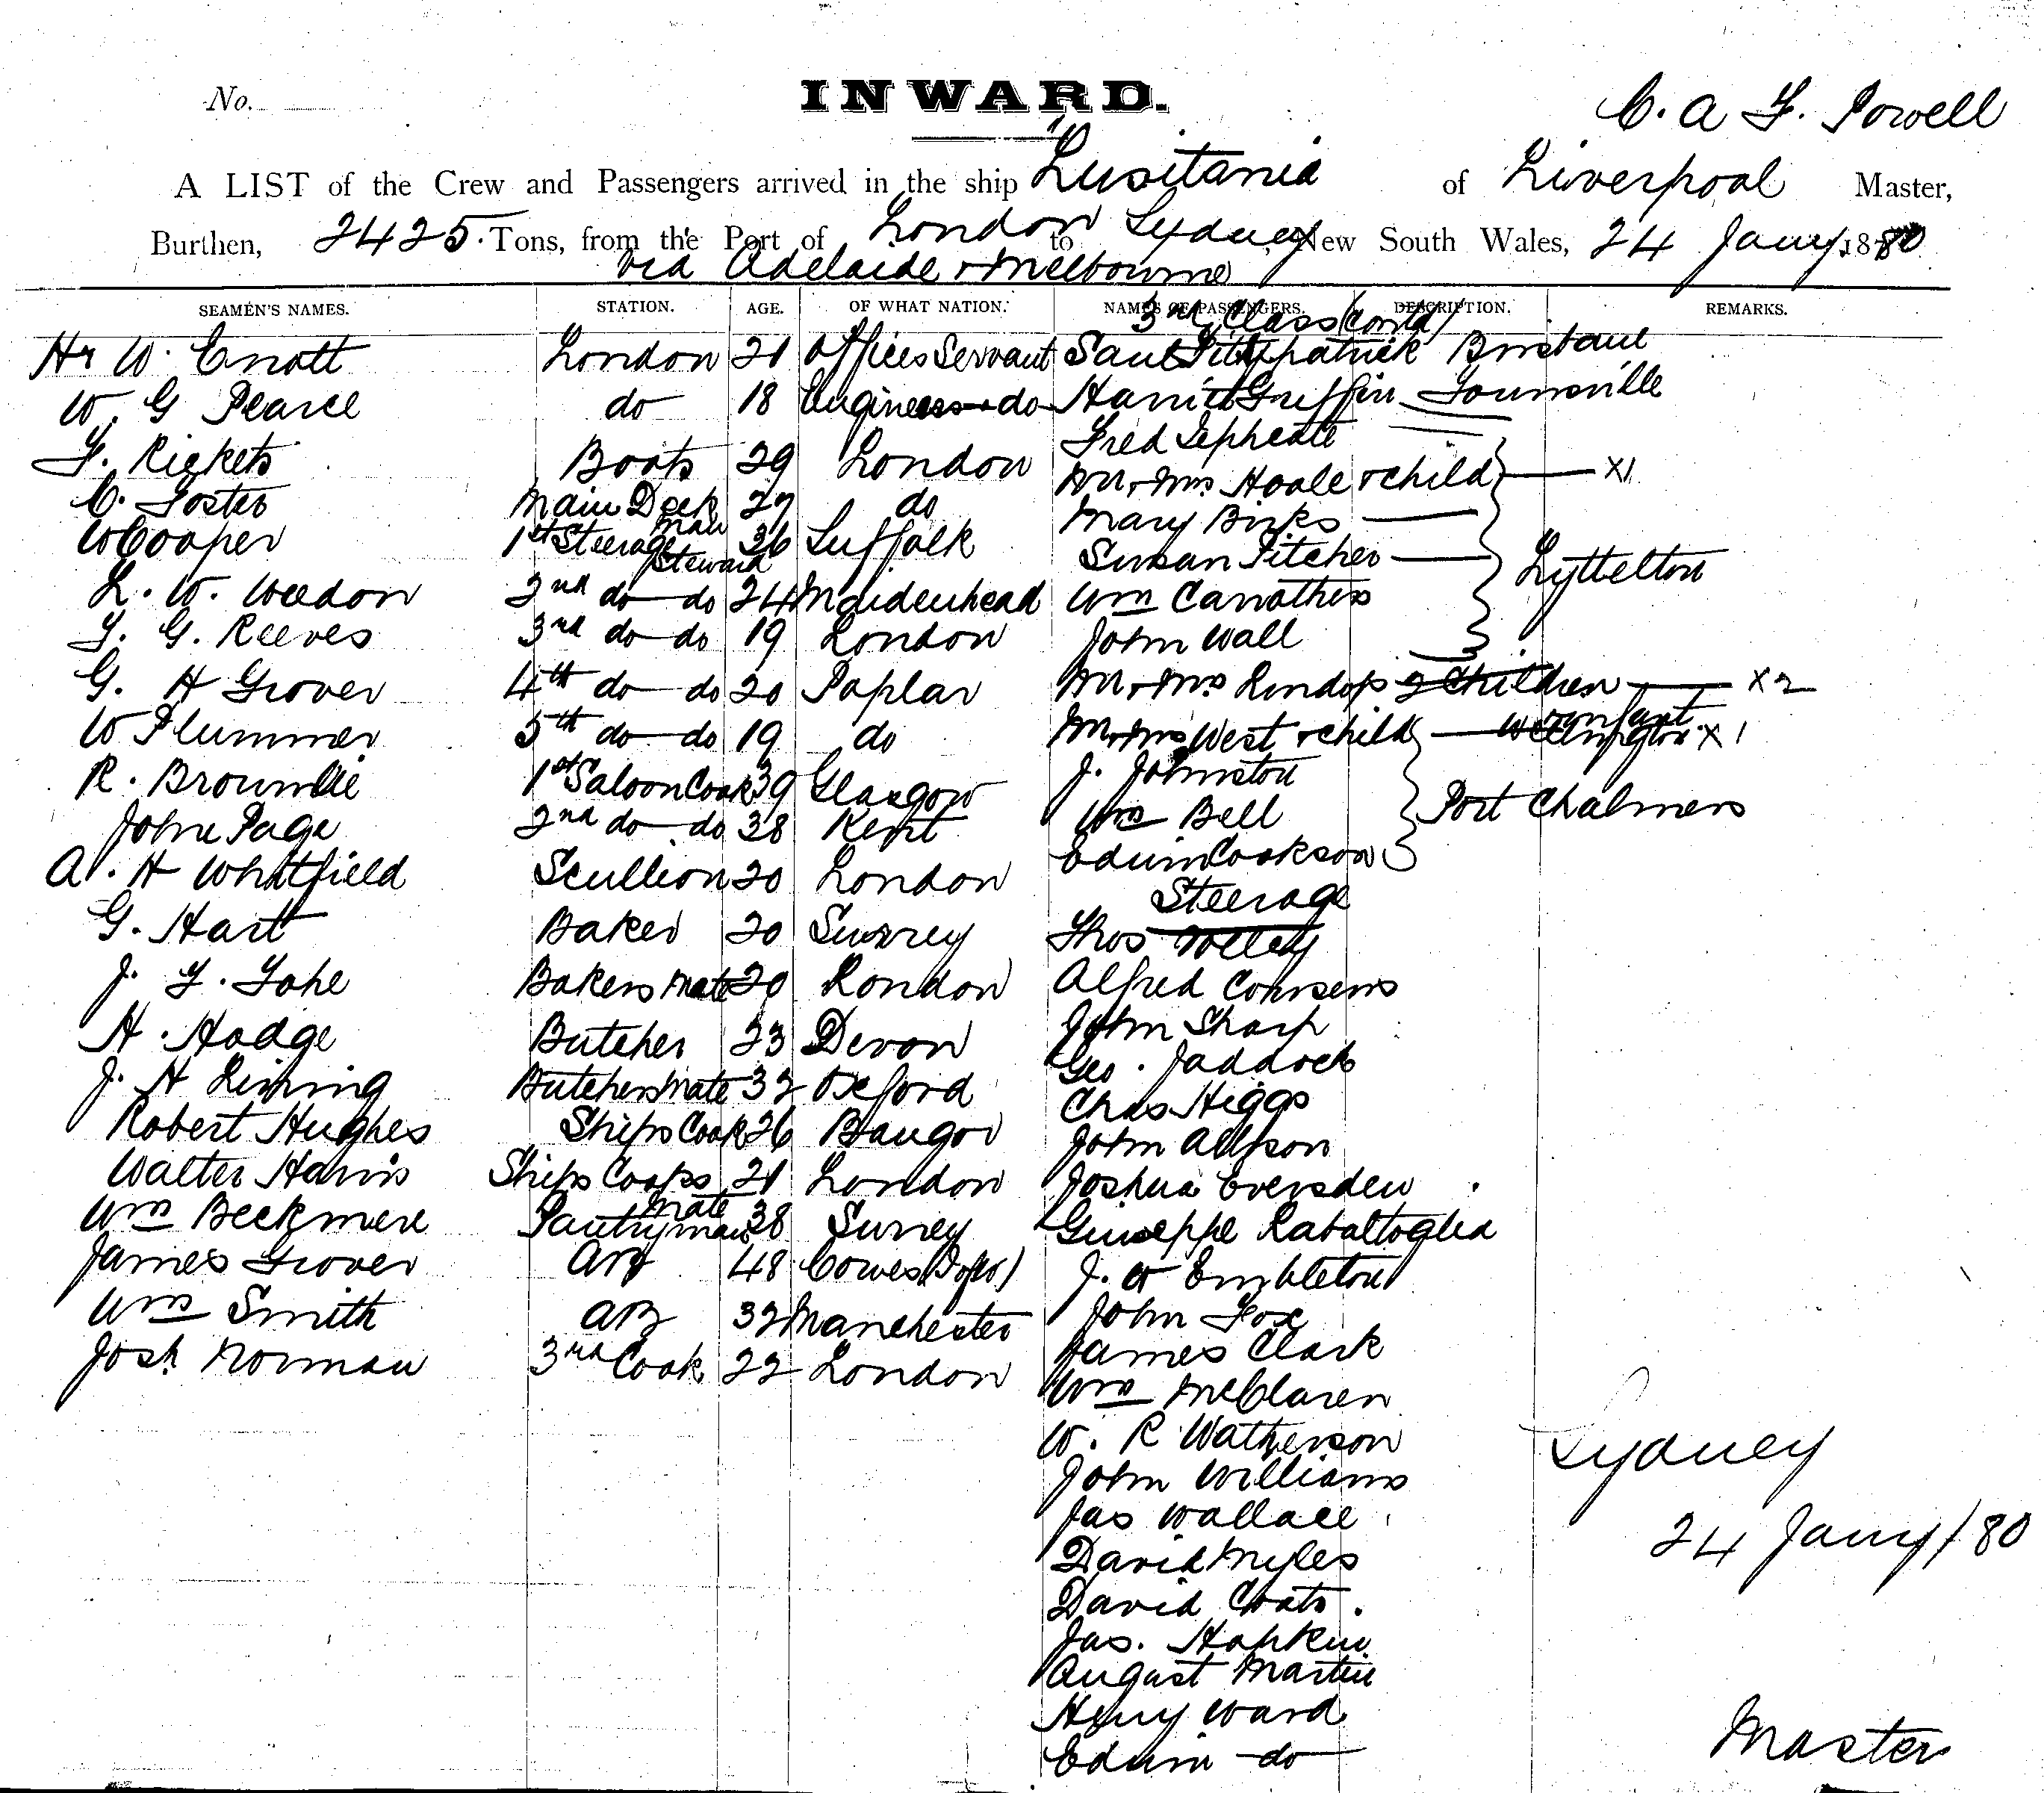 No.
INWARD.
C. A F. Powell
A LIST of the Crew and Passengers arrived in the ship "Lusitania of Liverpool Master,
Burthen, 2425 Tons, from the Port of London to Sydney, New South Wales, 24 Jany 1880
via Adelaide & Melbourne
SEAMEN'S NAMES. STATION. AGE. OF WHAT NATION. NAMES OF PASSENGERS. DESCRIPTION. REMARKS.
3rd Class (contd)
Hr W. London 21 Offices Servant Fitzpatrick
W. G Pearce do 18 Engineers do Griffin
F. Rickets Boots 29 London Fred
C. Foster Main Deck man 27 do Mr & Mrs Hoale & child X1
W Cooper 1st Steerage Steward 36 Suffolk Mary Birks
Susan Pitcher Lyttelton
L. W. Weedon 2nd do do 24 Maidenhead Wm Carrothers
F. G. Reeves 3rd do do 19 London John Wall
G. H Grover 4th do do 20 Poplar Mr & Mrs Rindop 2 Children X2
W Plummer 5th do do 19 do Mr & Mrs West & child & infant Wellington X1
R. Brownlie 1st Saloon Cook 39 Glasgow J. Johnston
John Page 2nd do do 38 Kent Wm Bell Port Chalmers
A. H Whitfield Scullion 20 London Edwin Cookson
Steerage
G. Hart Baker 20 Surrey Thos
J. F. Bakers Mate 20 London Alfred Cousens
H. Hodge Butcher 23 Devon John Sharp
Geo.
J. H Butchers Mate 32 Oxford Chas Higgs
Robert Hughes Ships Cook 26 Bangor John Allison
Walter Harris Ships Cooks mate 21 London Joshua Eversden
Wm Beckmere Pantryman 38 Surrey Giuseppe Rabaltoglia
James Grover AB 48 Cowes J. W Embleton
Wm Smith AB 32 Manchester John Fox
Josh Norman 3rd Cook 22 London James Clark
Wm McClaren
W. R Watherson
John Williams
Jas Wallace
David Myles
David Coats.
Jas. Hopkin
August Martin
Henry Ward
Edwin do
Sydney
24 Jany/80
Master